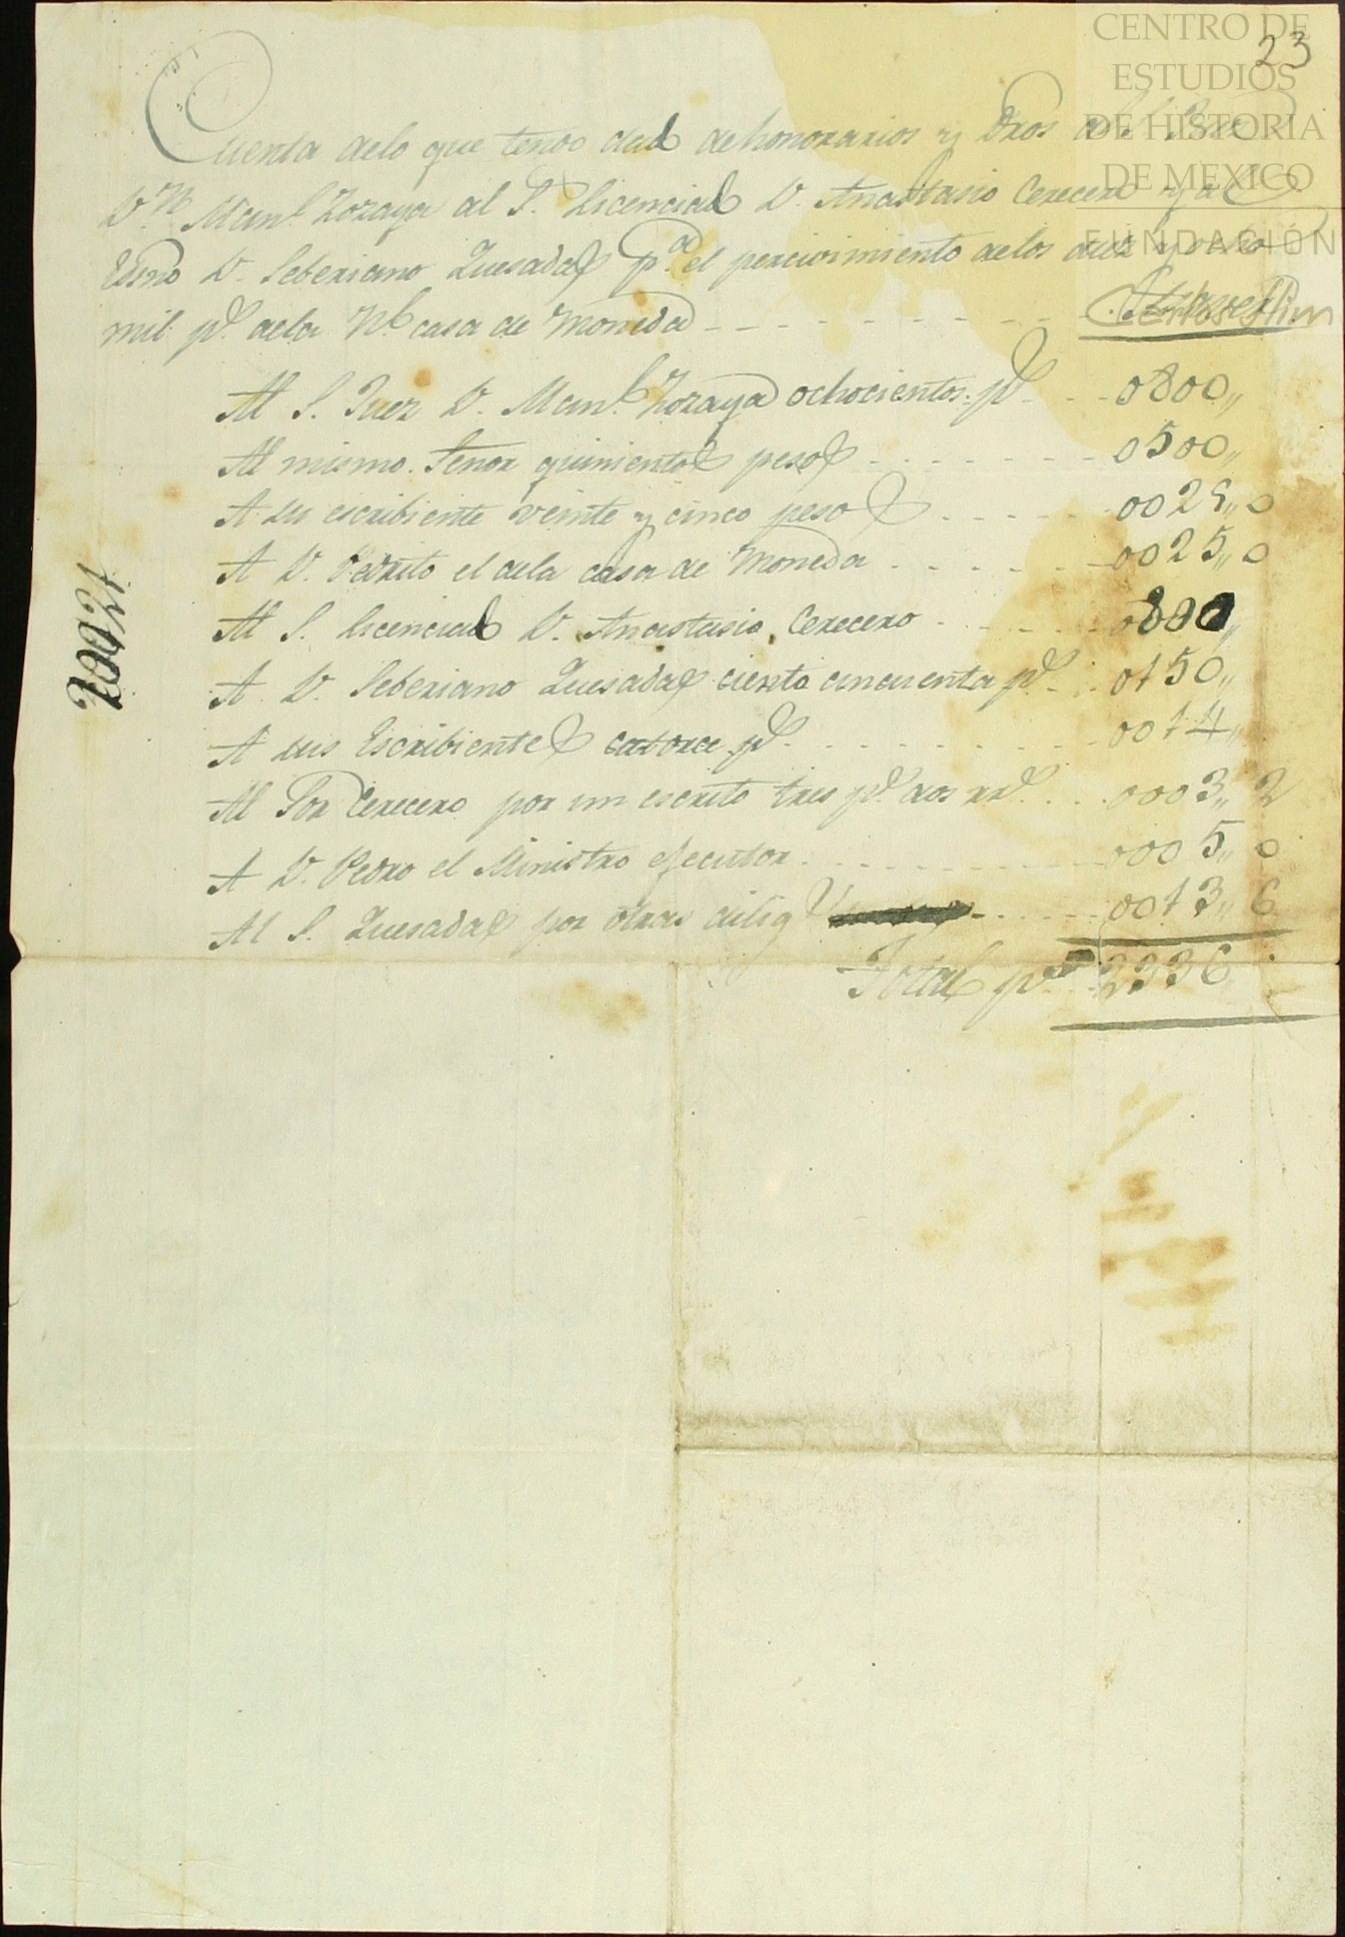 CENTRO DE
ESTUDIOS
DE HISTORIA
DE MEXICO
FUNDACIÓN
23
Cuenta delo que tengo dad de honorarios y Dros al S. Juez
D.n Man.l Lozaya al S. Licenciad D. Anastasio Cerecero y al
Esno D. Seberiano Quesadas p.a el percivimiento delos diez y ocho
mil p.s dela N.l casa de Moneda
Al S. Juez D. Man.l Zozaya ochocientos p.s 0800,,
Al mismo Señor quinientos pesos 0500,,
A su escribiente veinte y cinco pesos 0025,, 0
A D. Pedrito el dela casa de Moneda 0025,, 0
Al S. Licenciad D. Anastasio Cerecero 0800,,
A D. Seberiano Quesadas ciento cincuenta p.s 0150,,
A sus Escribientes catorce p.s 0014,,
Al Sor Cerecero por un escrito tres p.s dos rr.s 0003,, 2
A D. Pedro el Ministro ejecutor 0005,, 0
Al S. Quesadas por otras dilig.s 0013,, 6
Total p.s 2336